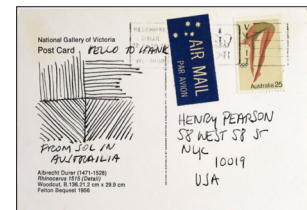 National Gallery of Victoria
Post Card
HELLO TO
FROM SOL IN
AUSTRAILIA
Albrecht Durer (1471-1528)
Rhinocerus 1515 (Detail)
Woodcut, B.136.21.2 cm x 29.9 cm
Felton Bequest 1956
MELBOURNE
AIR MAIL
PAR AVION
Australia 25
HENRY PEARSON
58 WEST 58 ST
NYC
10019
USA